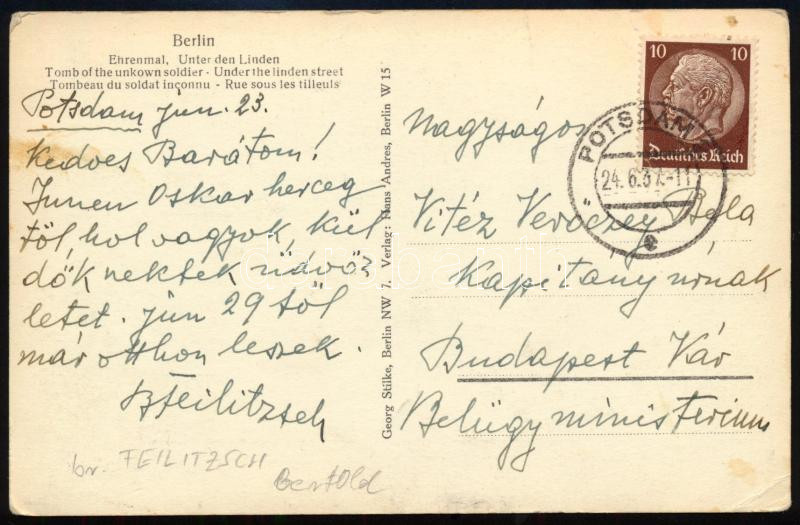 Berlin
Ehrenmal, Unter den Linden
Tomb of the unkown soldier - Under the linden street
Tombeau du soldat inçonnu - Rue sous les tilleuls
Potsdam jún. 23.
Kedves Barátom!
Innen Oskar herceg
től, hol vagyok, kül
dök nektek üdvöz
letet. jún 29 től
már otthon leszek.
BFeilitzsch
br. FEILITZSCH
Bertold
Georg Stilke, Berlin NW 7. Verlag: Hans Andres, Berlin W 15
10 10
Deutsches Reich
POTSDAM
24.6.37.-11
Nagyságos
Vitéz Veróczey Béla
Kapitány úrnak
Budapest Vár
Belügyministerium